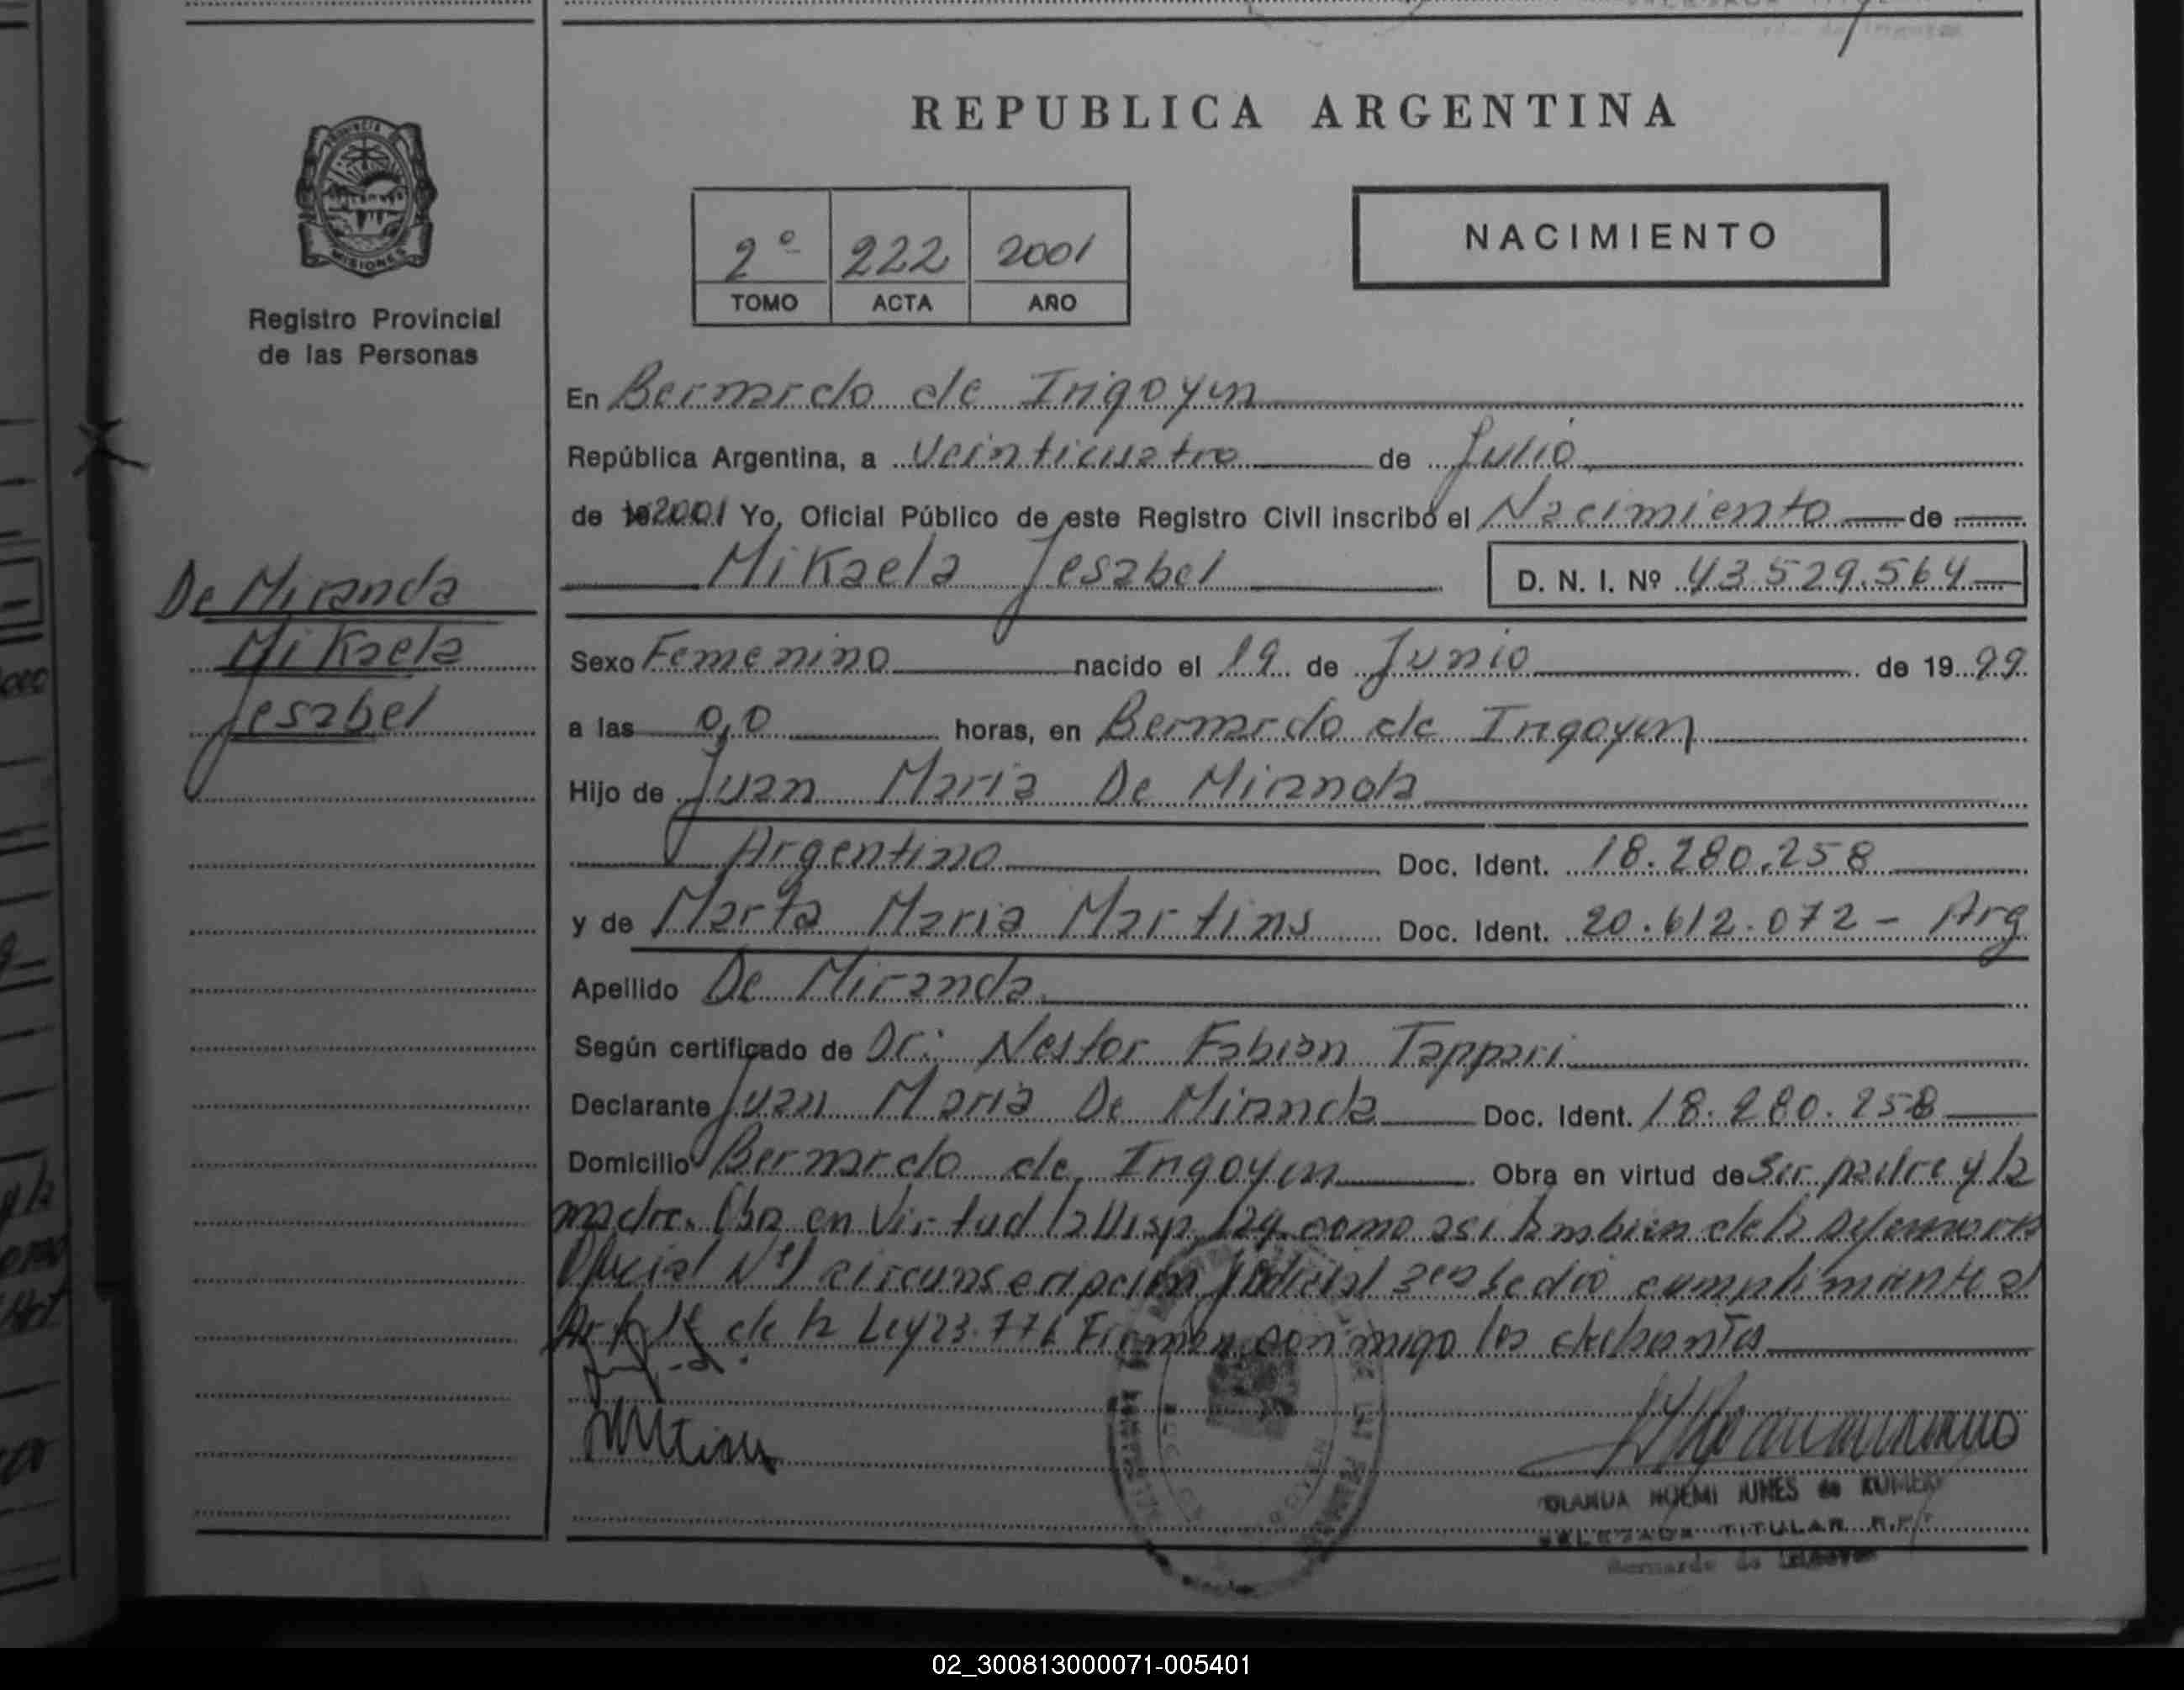 REPUBLICA ARGENTINA
PROVINCIA
MISIONES
Registro Provincial
de las Personas
2º 222 2001
TOMO ACTA AÑO
NACIMIENTO
En Bernardo de Irigoyen
República Argentina, a Veinticuatro de Julio
de 19 2001 Yo, Oficial Público de este Registro Civil inscribo el Nacimiento de
Mikaela Jesabel D. N. I. Nº 43.529.564
De Miranda
Mikaela
Jesabel
Sexo Femenino nacido el 19 de Junio de 19 99
a las 0,0 horas, en Bernardo de Irigoyen
Hijo de Juan Maria De Miranda
Argentino Doc. Ident. 18.280.258
y de Marta Maria Martins Doc. Ident. 20.612.072 - Arg
Apellido De Miranda
Según certificado de Dr: Nestor Fabian Tappari
Declarante Juan Maria De Miranda Doc. Ident. 18.280.258
Domicilio Bernardo de Irigoyen Obra en virtud de Ser padre y la
madre. Obra en Virtud la Disp. 124 como asi tambien de la
Oficial Nº1 circunscripción Judicial se dio cumplimiento al
Art de la Ley 23.776 Firman conmigo los
NOEMI de
TITULAR
Bernardo de Irigoyen
02_300813000071-005401